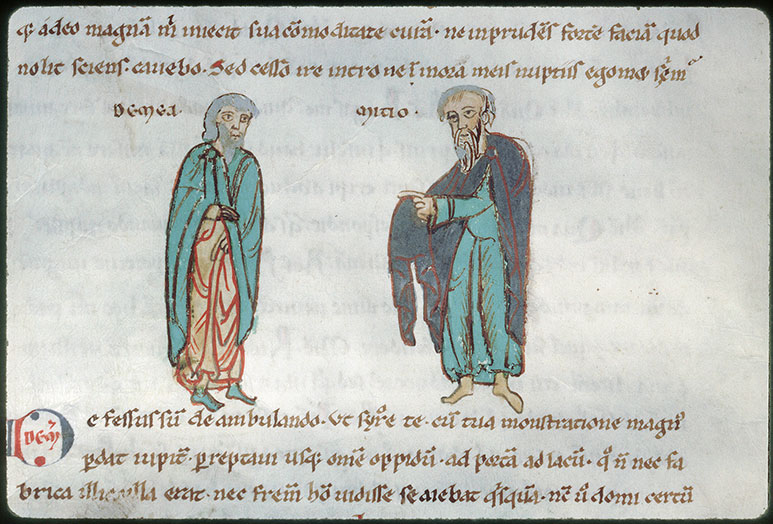 q̄ adeo magnā m̄ iniecit sua cōmoditate curā· ne inprudēs forte faciā quod
nolit sciens· cavebo· Sed cesso ire intro ne īmorā meis nuptiis egomet
DEMEA· MITIO·
DEMꝰ
e fessus sū de ambulando· Ut syre te· cū tua monstratione magnꝰ
pdat iupit̄· perreptavi usq; om̄e oppidū· ad portā ad lacū· qͦ n̄ nec fa
brica illic ulla erat· nec frem̄ hō vidisse se aiebat qͥsquā· domi certū